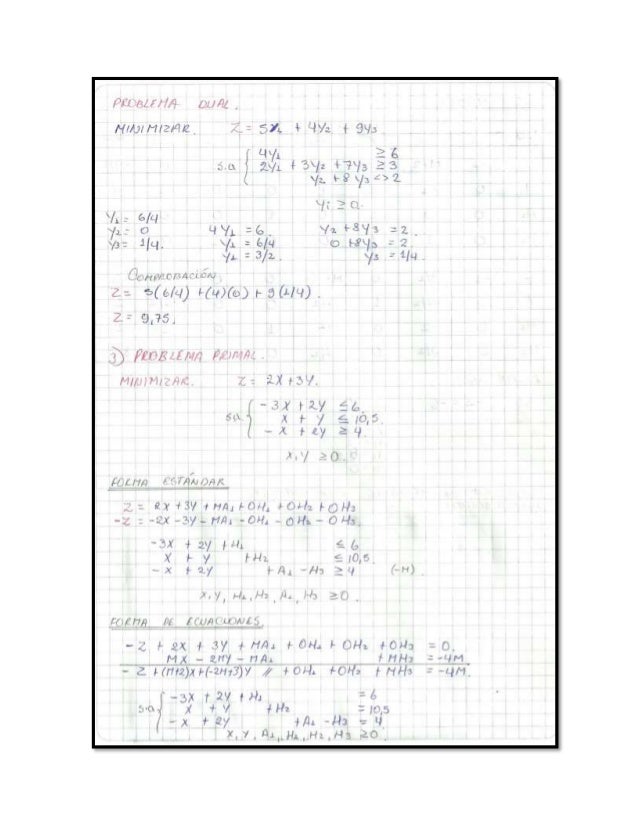 PROBLEMA DUAL.
MINIMIZAR. Z = 5Y1 + 4Y2 + 9Y3
s.a { 4Y1 ≥ 6
2Y1 + 3Y2 + 7Y3 ≥ 3
Y2 + 8Y3 <> 2
Yi ≥ 0.
Y1 = 6/4
Y2 = 0 4Y1 = 6. Y2 + 8Y3 = 2.
Y3 = 1/4. Y1 = 6/4 0 + 8Y3 = 2.
Y1 = 3/2. Y3 = 1/4.
COMPROBACIÓN,
Z = 5(6/4) + (4)(0) + 9(1/4).
Z = 9,75.
3) PROBLEMA PRIMAL.
MINIMIZAR. Z = 2X + 3Y.
s.a. { -3X + 2Y ≤ 6.
X + Y ≤ 10,5.
-X + 2Y ≥ 4.
X, Y ≥ 0.
FORMA ESTÁNDAR
Z = 2X + 3Y + MA1 + OH1 + OH2 + OH3
-Z = -2X - 3Y - MA1 - OH1 - OH2 - OH3.
-3X + 2Y + H1 ≤ 6
X + Y + H2 ≤ 10,5.
-X + 2Y + A1 - H3 ≥ 4 (-M).
X, Y, H1, H2, A1, H3 ≥ 0.
FORMA DE ECUACIONES.
-Z + 2X + 3Y + MA1 + OH1 + OH2 + OH3 = 0.
MX - 2MY - MA1 + MH3 = -4M.
-Z + (M+2)X + (-2M+3)Y // + OH1 + OH2 + MH3 = -4M.
s.a { -3X + 2Y + H1 = 6
X + Y + H2 = 10,5
-X + 2Y + A1 - H3 = 4
X, Y, A1, H1, H2, H3 ≥ 0.